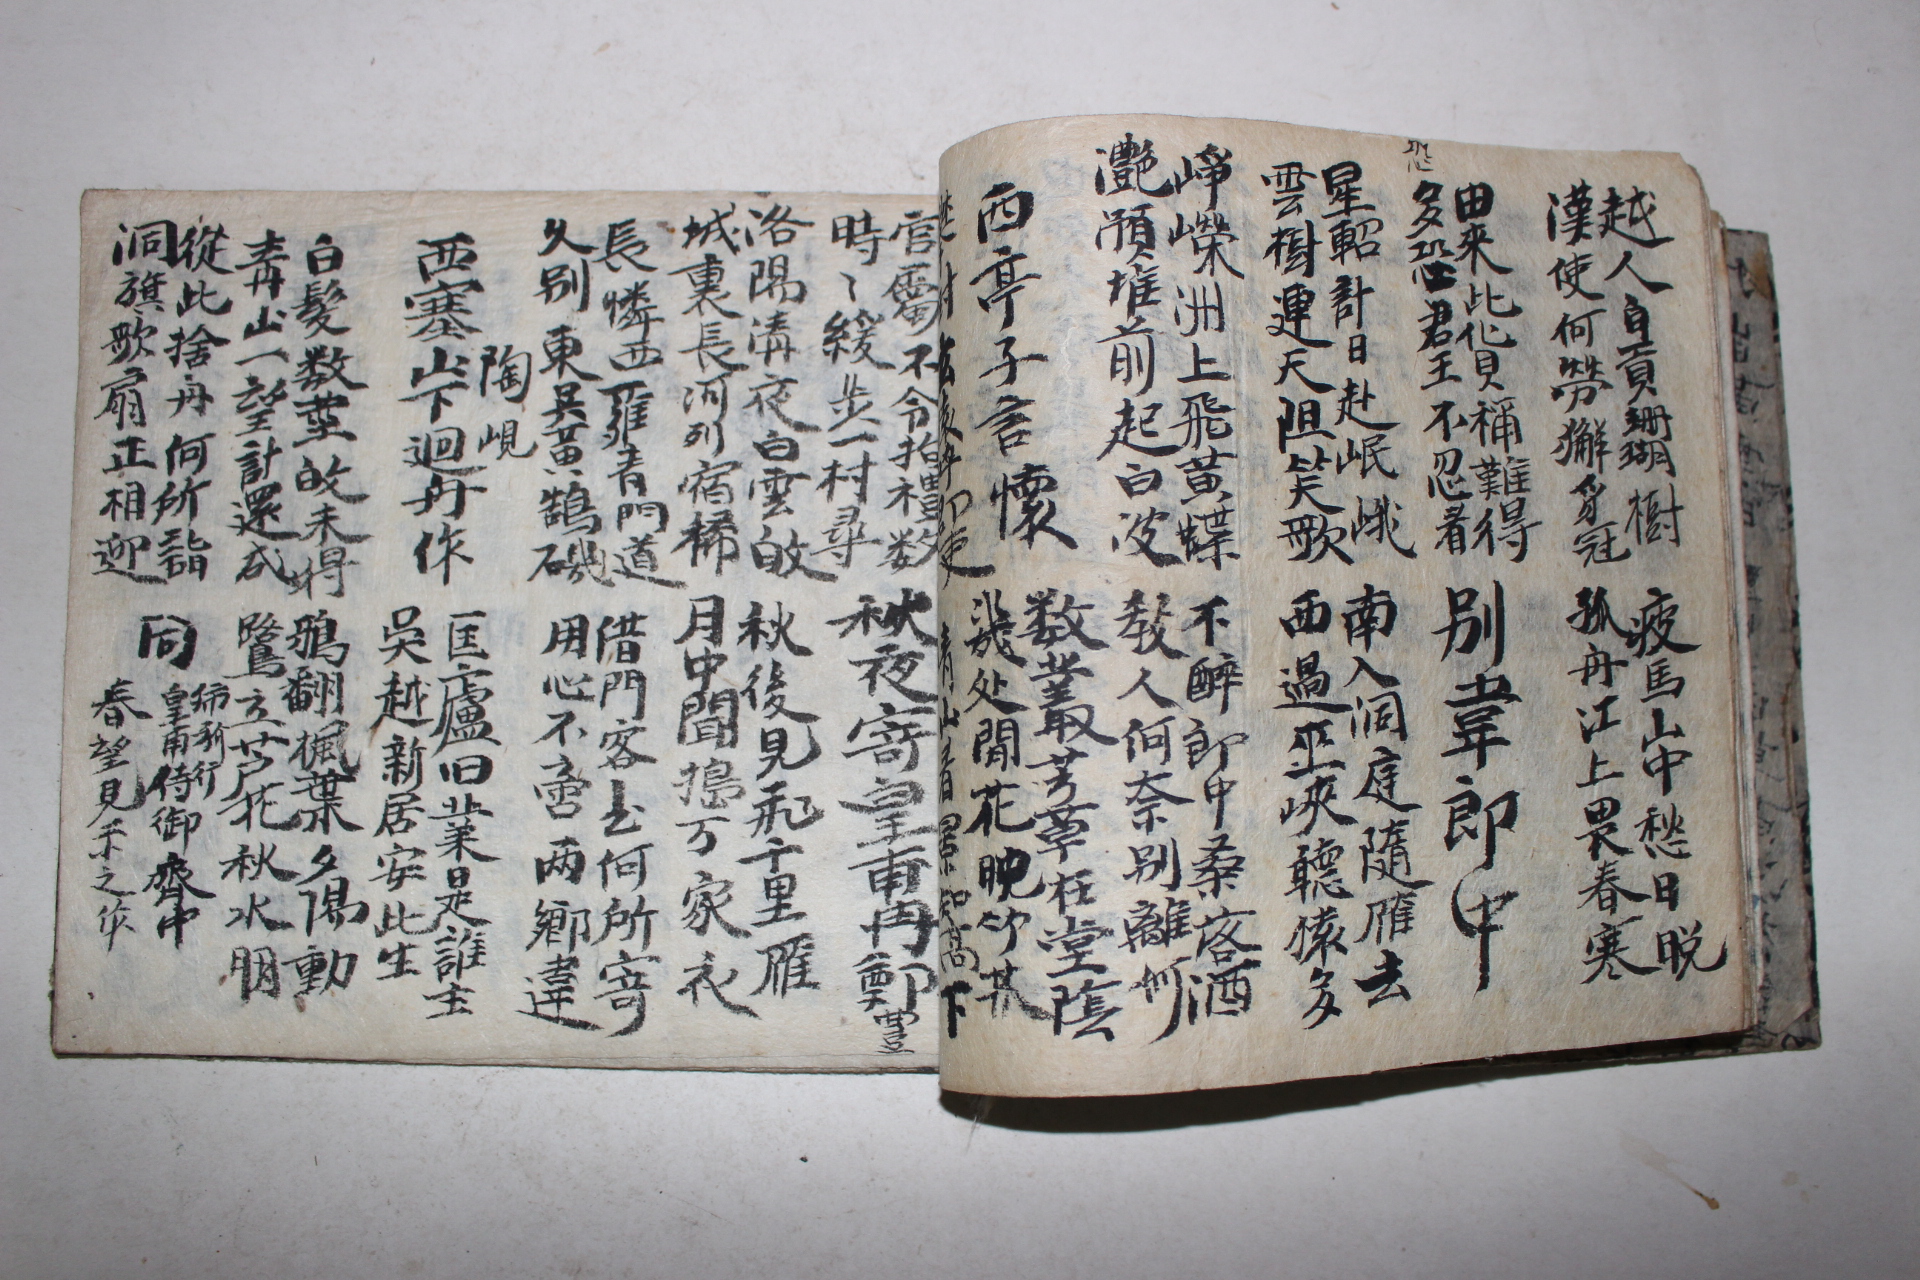 越人自貢珊瑚樹
漢使何勞獬豸冠
疲馬山中愁日晚
孤舟江上畏春寒
由來此貨稱難得
多恐君王不忍看
別韋郎中
星軺計日赴岷峨
雲樹連天阻笑歌
南入洞庭隨雁去
西過巫峽聽猿多
崢嶸洲上飛黃蝶
灔澦堆前起白波
不醉郎中桑落酒
教人何奈別離何
西亭子言懷
数叢芳草在堂陰
幾处閒花映竹林
官屬不令拘禮数
時〻緩步一村尋
秋夜寄皇甫冉鄭豊
洛陽清夜白雲皈
城裏長河列宿稀
秋後見飛千里雁
月中聞搗万家衣
長憐西雍青門道
久別東吳黃鵠磯
借問客去何所寄
用心不啻两鄉違
陶峴
西塞山下迴舟作
匡廬旧業是誰主
吳越新居安此生
白髮数莖皈未得
青山一望計還成
鴉翻楓葉夕陽動
鷺立芦花秋水明
從此捨舟何所詣
酒旗歌扇正相迎
同
皇甫侍御齊中
春望見示之作